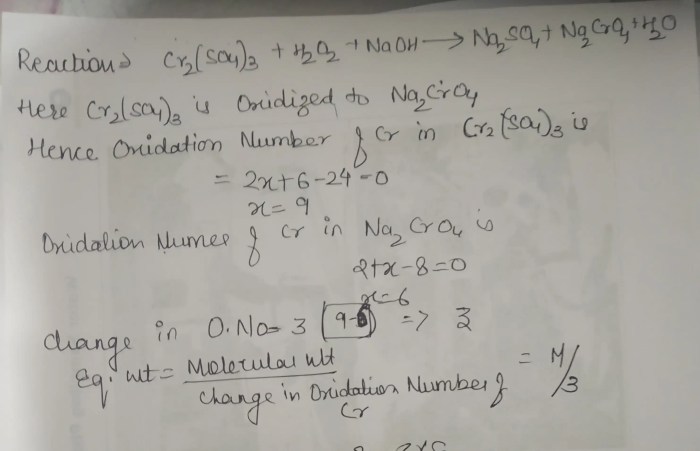 Reaction→ Cr₂(SO₄)₃ + H₂O₂ + NaOH → Na₂SO₄ + Na₂CrO₄ + H₂O
Here Cr₂(SO₄)₃ is Oxidized to Na₂CrO₄
Hence Oxidation Number of Cr in Cr₂(SO₄)₃ is
= 2x+6-24=0
x=9
Oxidation Numer of Cr in Na₂CrO₄ is
2+x-8=0
x=6
change in O.No= 3 (9-6) => 3
Eq. wt = Molecular wt / change in Oxidation Number of Cr = M/3